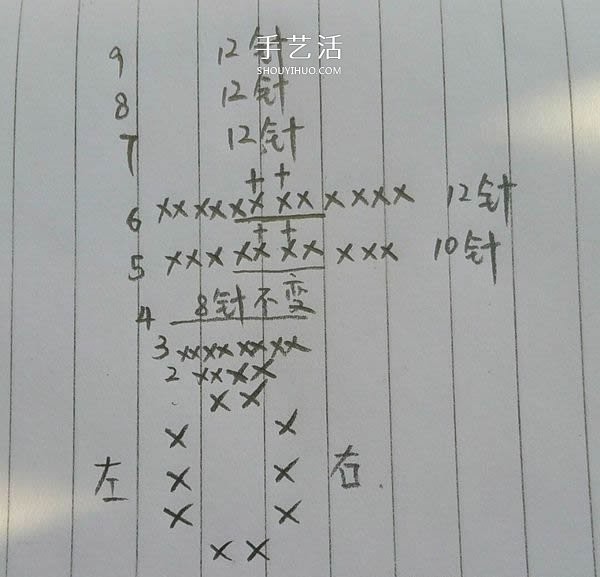 手艺活
SHOUYIHUO.COM
9 12针
8 12针
7 12针
++
6 XX XX XX XX XXXX 12针
++
5 XXX XX XX XXX 10针
4 8针不变
3 XXXX XX XX
2 XXXX
XX
X X
左 X X 右.
X X
XX